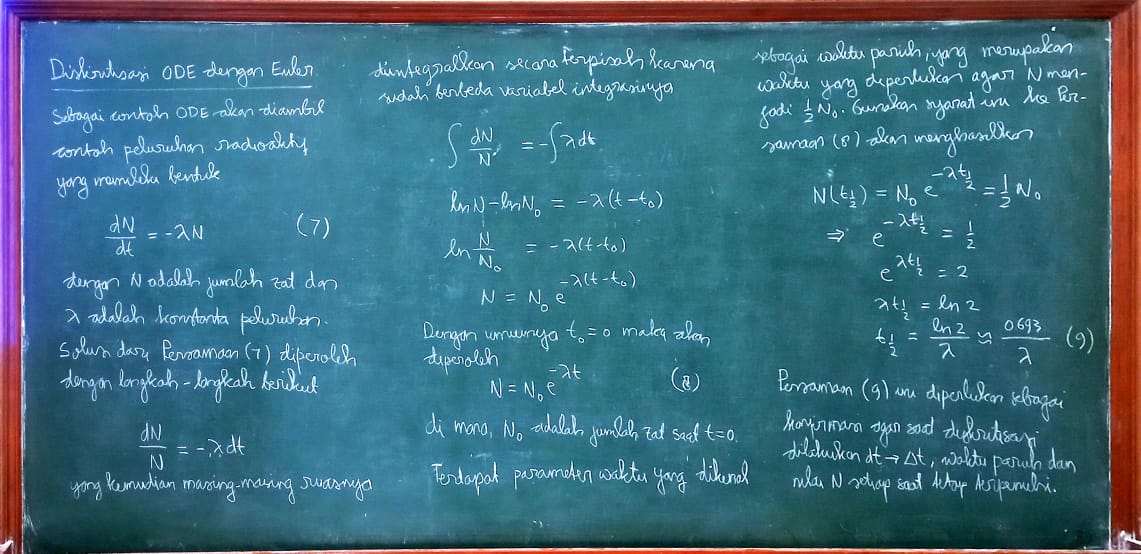 Diskritisasi ODE dengan Euler
Sebagai contoh ODE akan diambil
contoh peluruhan radioaktif
yang memiliki bentuk
dN/dt = -λN (7)
dengan N adalah jumlah zat dan
λ adalah konstanta peluruhan.
Solusi dari Persamaan (7) diperoleh
dengan langkah-langkah berikut
dN/N = -λdt
yang kemudian masing-masing ruasnya
diintegralkan secara terpisah karena
sudah berbeda variabel integrasinya
∫ dN/N = -∫ λdt
ln N - ln N₀ = -λ(t-t₀)
ln N/N₀ = -λ(t-t₀)
N = N₀ e^{-λ(t-t₀)}
Dengan umumnya t₀=0 maka akan
diperoleh
N = N₀ e^{-λt} (8)
di mana, N₀ adalah jumlah zat saat t=0.
Terdapat parameter waktu yang dikenal
sebagai waktu paruh, yang merupakan
waktu yang diperlukan agar N men-
jadi ½ N₀. Gunakan syarat ini ke Per-
samaan (8) akan menghasilkan
N(t½) = N₀ e^{-λt½} = ½ N₀
⇒ e^{-λt½} = ½
e^{λt½} = 2
λt½ = ln 2
t½ = ln 2/λ ≈ 0693/λ (9)
Persamaan (9) ini diperlukan sebagai
konfirmasi agar saat diskritisasi
dilakukan dt → Δt, waktu paruh dan
nilai N setiap saat tetap terpenuhi.